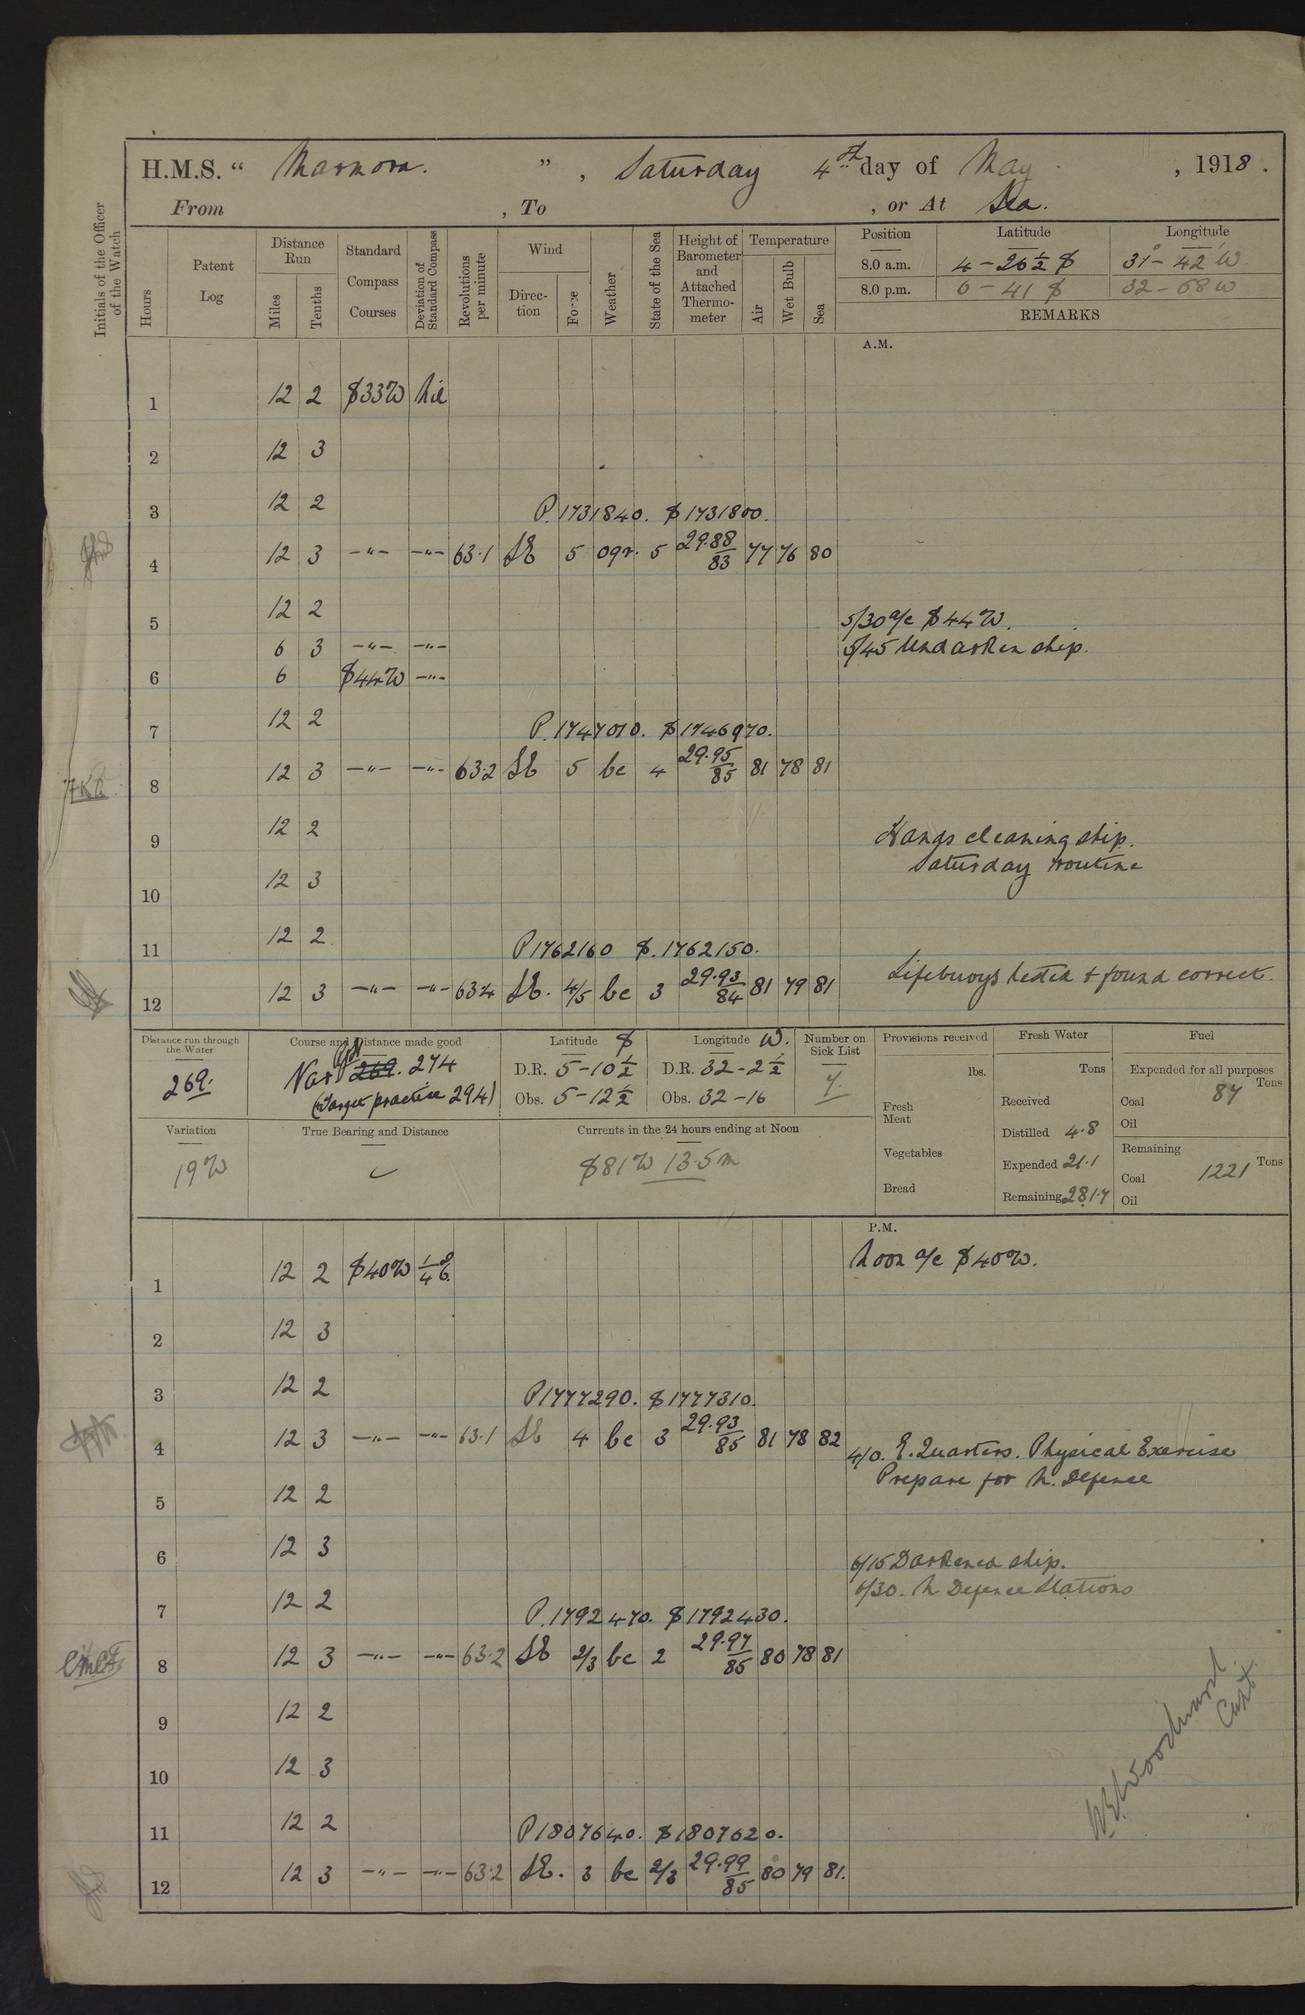 H.M.S. “ Marmora. ” , Saturday 4th day of May , 1918 .
From , To , or At Sea.
Initials of the Officer of the Watch
Hours
Patent Log
Distance Run
Miles
Tenths
Standard Compass Courses
Deviation of Standard Compass
Revolutions per minute
Wind
Direction
Force
Weather
State of the Sea
Height of Barometer and Attached Thermometer
Temperature
Air
Wet Bulb
Sea
Position Latitude Longitude
8.0 a.m. 4 - 26 ½ S 31 - 42 W
8.0 p.m. 6 - 41 S 32 - 58 W
REMARKS
A.M.
1 12 2 S33W Nil
2 12 3
3 12 2 P. 1731840. S 1731800.
4 12 3 -"- -"- 63.1 SE 5 ogr. 5 29.88/83 77 76 80
5 12 2 5/30 a/c S44W.
6 3 -"- -"- 5/45 Undarken ship.
6 6 S44W -"-
7 12 2 P. 1747010. S 1746970.
8 12 3 -"- -"- 63.2 SE 5 bc 4 29.95/85 81 78 81
9 12 2 Hands cleaning ship.
Saturday routine
10 12 3
11 12 2 P 1762160 S. 1762150.
12 12 3 -"- -"- 63.4 SE. 4/5 bc 3 29.93/84 81 79 81 Lifebuoys tested & found correct.
Distance run through the Water
269.
Course and Distance made good
269. 274
(Target practice 294)
Latitude S
D.R. 5 - 10 ½
Obs. 5 - 12 ½
Longitude W.
D.R. 32 - 2 ½
Obs. 32 - 16
Number on Sick List
7.
Provisions received
lbs.
Fresh Meat
Vegetables
Bread
Fresh Water
Tons
Received
Distilled 4.8
Expended 21.1
Remaining 281.7
Fuel
Expended for all purposes
Tons
Coal 87
Oil
Remaining
Tons
Coal 1221
Oil
Variation
19 W
True Bearing and Distance
Currents in the 24 hours ending at Noon
S 81 W 13.5 m
P.M.
1 12 2 S40W ¼° E. Noon a/c S40W.
2 12 3
3 12 2 P 1777290. S 1777310.
4 12 3 -"- -"- 63.1 SE 4 bc 3 29.93/85 81 78 82 4/0. E. Quarters. Physical Exercise
Prepare for N. Defence
5 12 2
6 12 3 6/15 Darkened ship.
6/30. N Defence Stations
7 12 2 P. 1792470. S 1792430.
8 12 3 -"- -"- 63.2 SE 2/3 bc 2 29.97/85 80 78 81
9 12 2
10 12 3
11 12 2 P 1807640. S 1807620.
12 12 3 -"- -"- 63.2 SE. 3 bc 2/3 29.99/85 80 79 81.
Woodward
Capt.